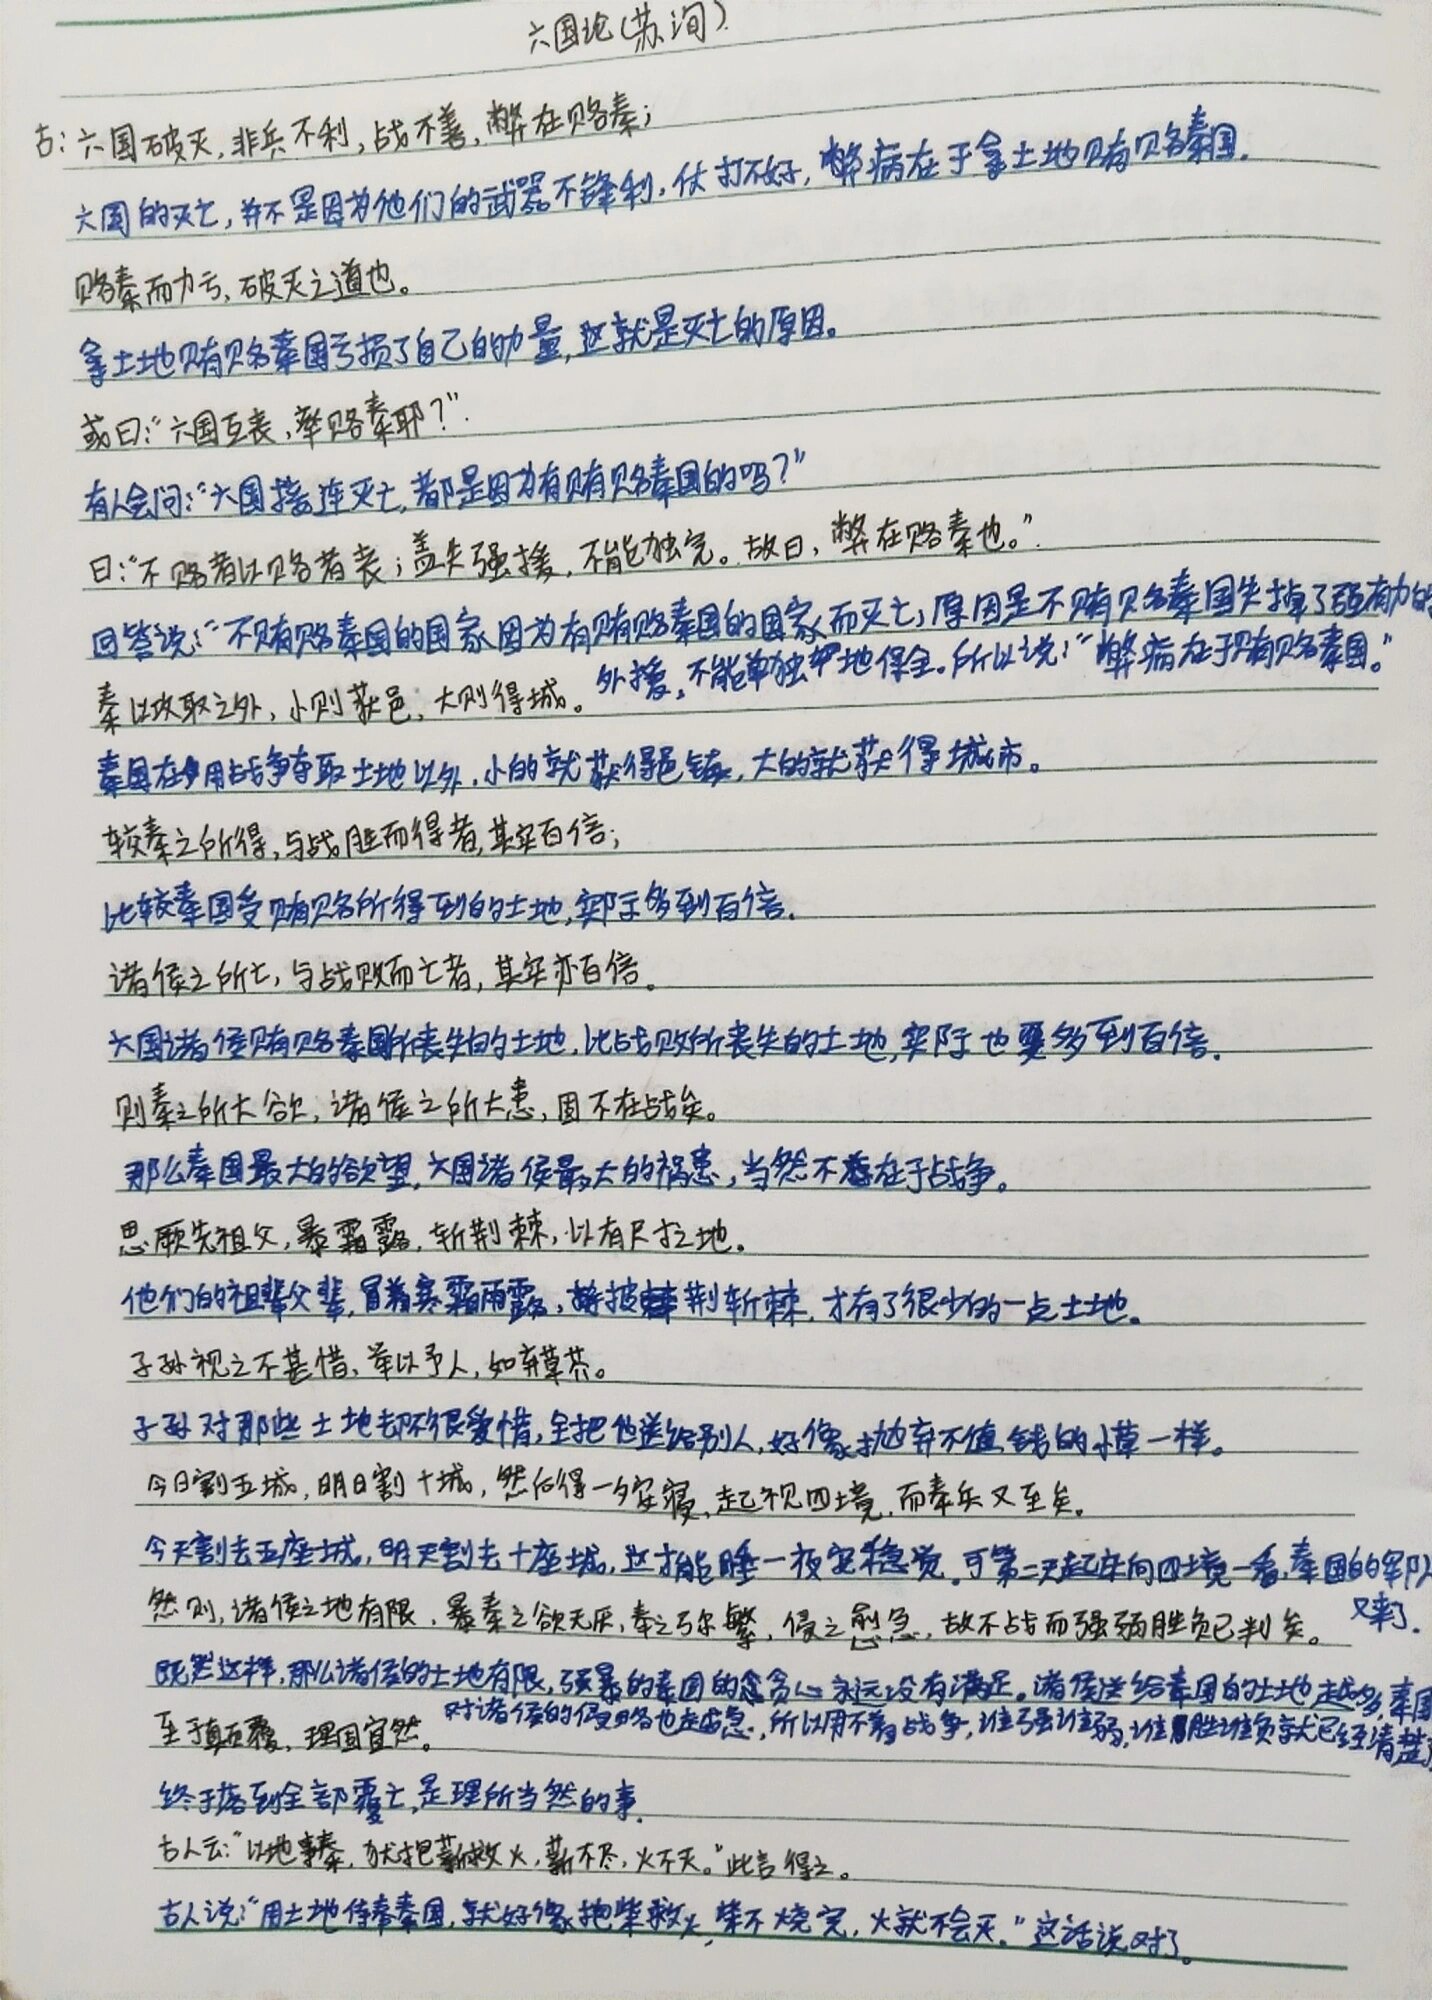 六国论(苏洵)
古:六国破灭,非兵不利,战不善,弊在赂秦;
六国的灭亡,并不是因为他们的武器不锋利,仗打不好,弊病在于拿土地贿赂秦国.
赂秦而力亏,破灭之道也。
拿土地贿赂秦国亏损了自己的力量,这就是灭亡的原因。
或曰:“六国互丧,率赂秦耶?”.
有人会问:“六国接连灭亡,都是因为有贿赂秦国的吗?”
曰:“不赂者以赂者丧;盖失强援,不能独完。故曰,弊在赂秦也。”
回答说:“不贿赂秦国的国家因为有贿赂秦国的国家而灭亡,原因是不贿赂秦国失掉了强有力的
外援,不能单独地保全.所以说:“弊病在于贿赂秦国。”
秦以攻取之外,小则获邑,大则得城。
秦国在用战争夺取土地以外,小的就获得邑镇,大的就获得城市。
较秦之所得,与战胜而得者,其实百倍;
比较秦国受贿赂所得到的土地,实际多到百倍.
诸侯之所亡,与战败而亡者,其实亦百倍。
六国诸侯贿赂秦国所丧失的土地,比战败所丧失的土地,实际也要多到百倍.
则秦之所大欲,诸侯之所大患,固不在战矣。
那么秦国最大的欲望,六国诸侯最大的祸患,当然不在于战争。
思厥先祖父,暴霜露,斩荆棘,以有尺寸之地。
他们的祖辈父辈,冒着寒霜雨露,披荆斩棘,才有了很少的一点土地。
子孙视之不甚惜,举以予人,如弃草芥。
子孙对那些土地却不很爱惜,全把他送给别人,好像抛弃不值钱的小草一样。
今日割五城,明日割十城,然后得一夕安寝,起视四境,而秦兵又至矣。
今天割去五座城,明天割去十座城,这才能睡一夜安稳觉.可第二天起床向四境一看,秦国的军队
又来了.
然则,诸侯之地有限,暴秦之欲无厌,奉之弥繁,侵之愈急,故不战而强弱胜负已判矣。
既然这样,那么诸侯的土地有限,强暴的秦国的贪心永远没有满足。诸侯送给秦国的土地越多,秦国
对诸侯的侵略也越急,所以用不着战争,谁强谁弱,谁胜谁负就已经清楚了
至于颠覆,理固宜然。
终于落到全部覆亡,是理所当然的事.
古人云:“以地事秦,犹抱薪救火,薪不尽,火不灭。”此言得之。
古人说:“用土地侍奉秦国,就好像抱柴救火,柴不烧完,火就不会灭.”这话说对了。